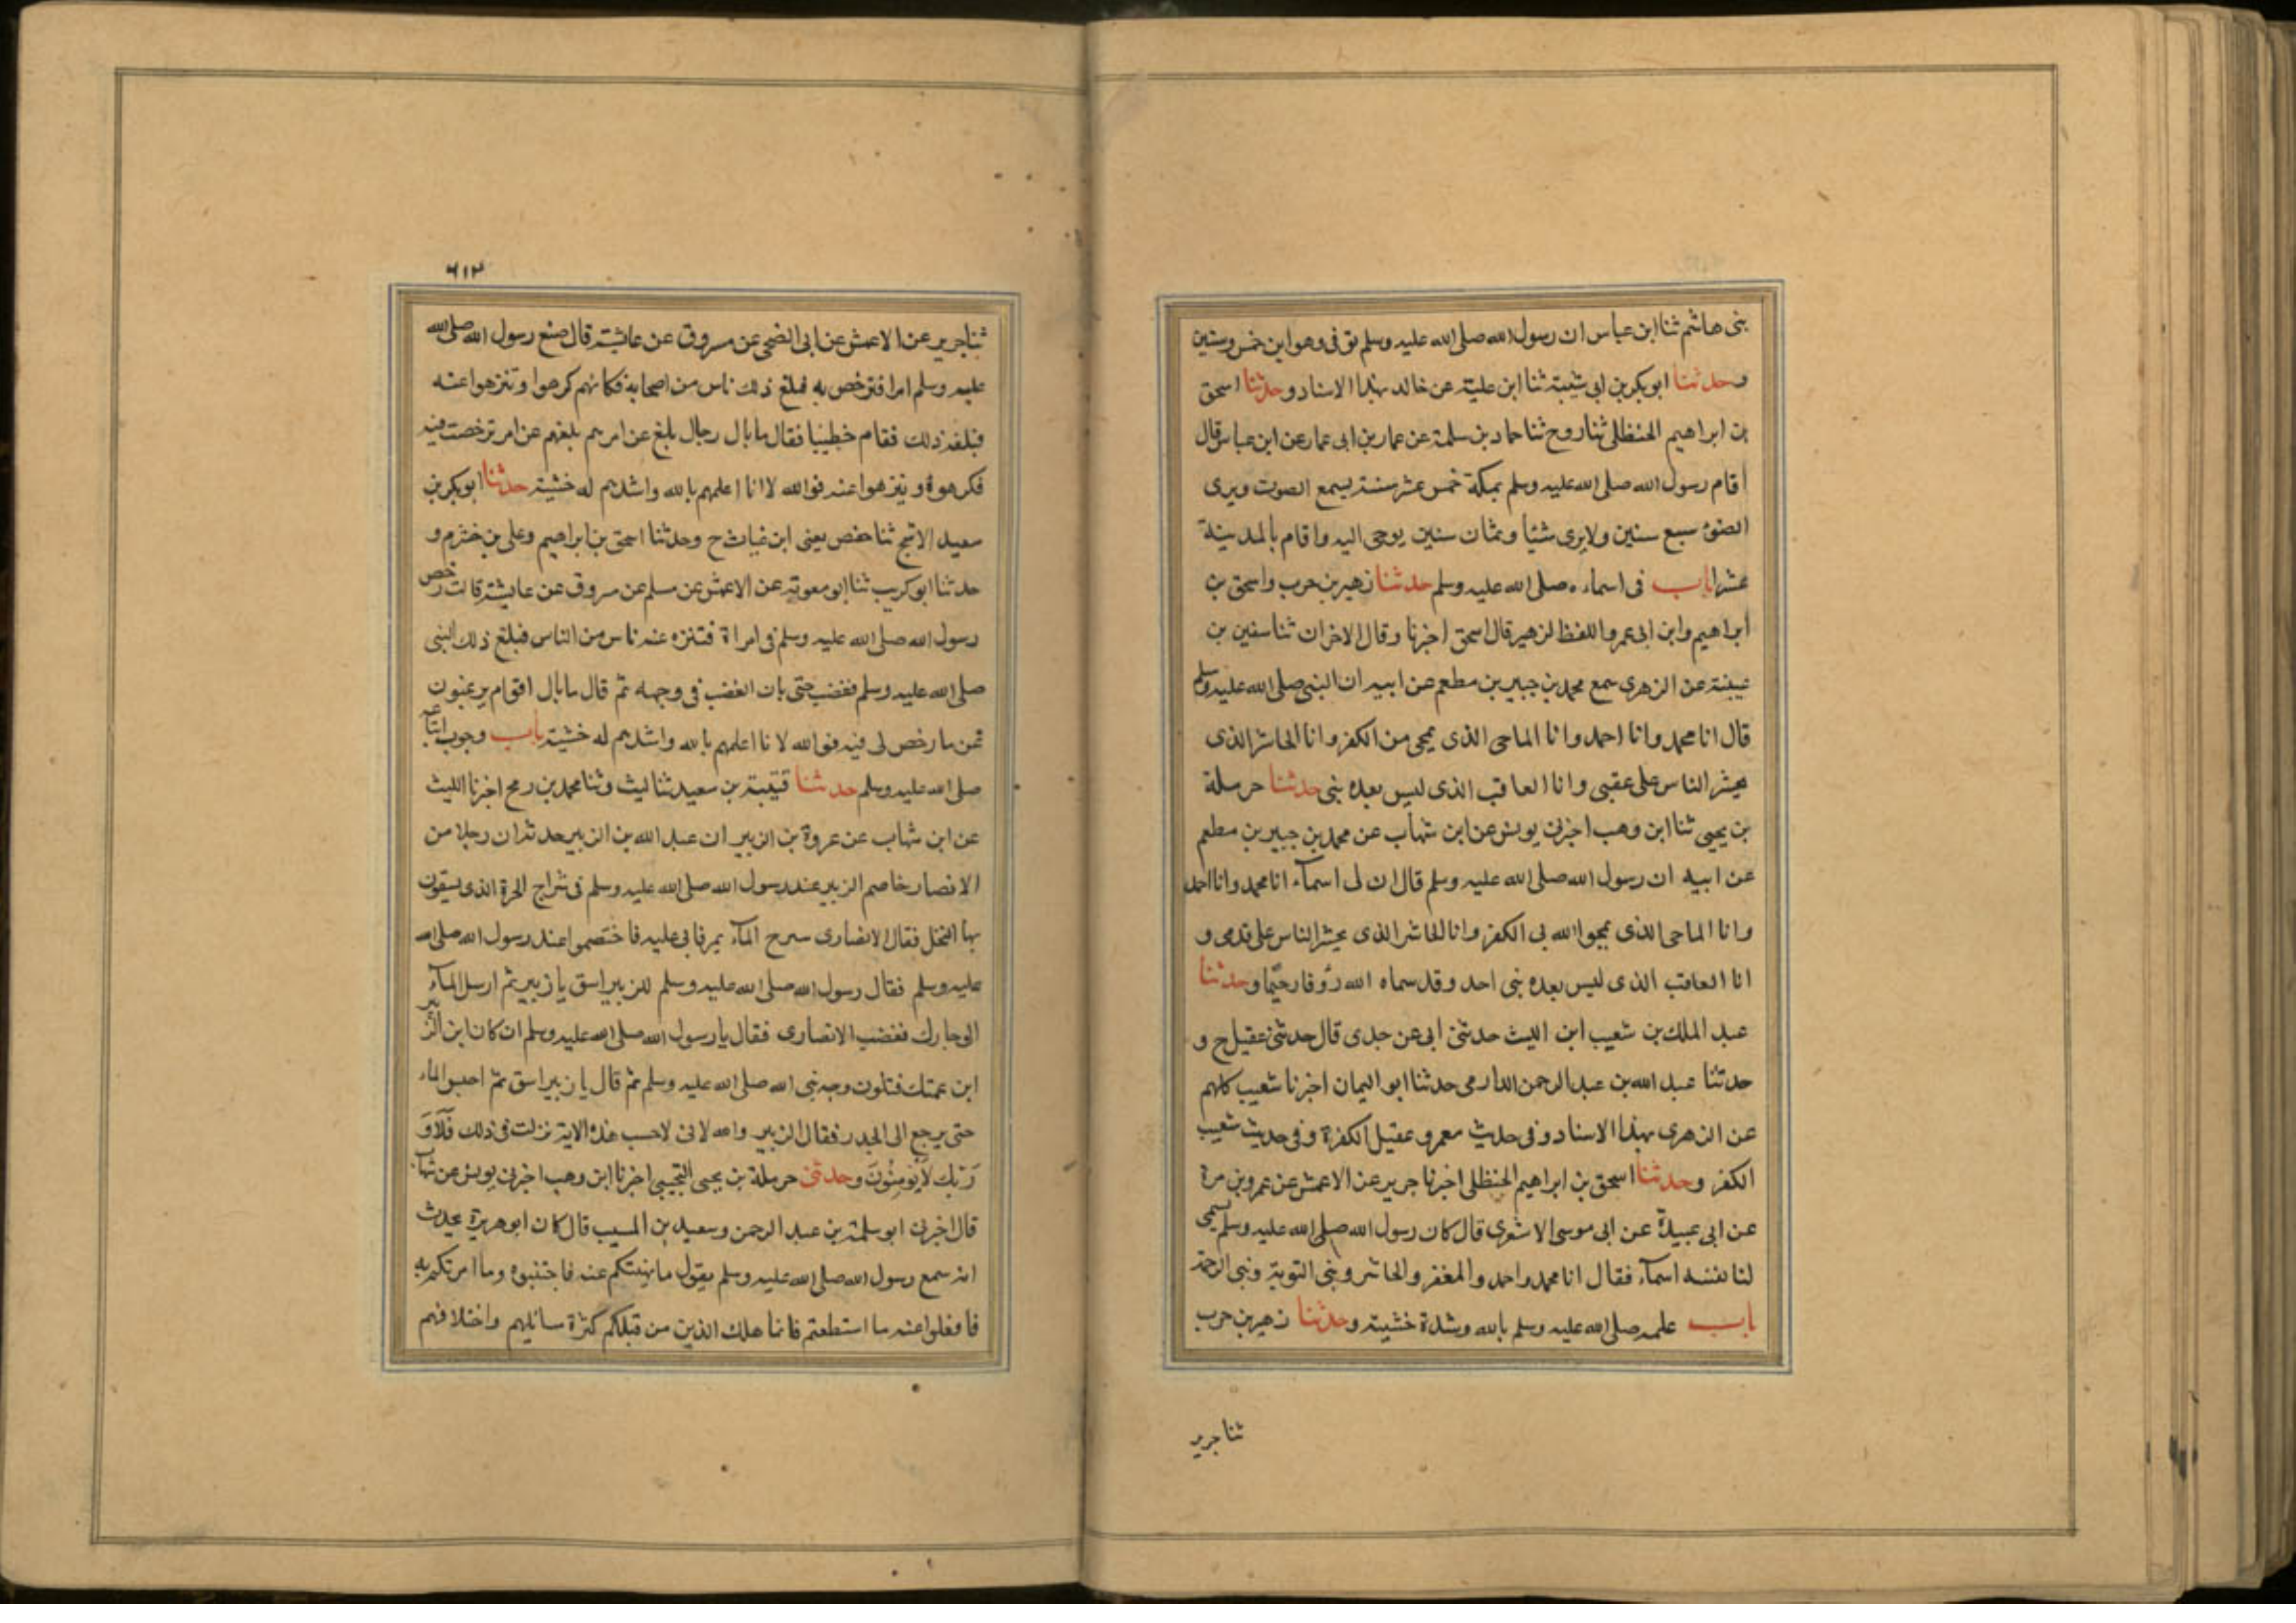 بنى هاشم ثنا ابن عباس ان رسول الله صلى الله عليه وسلم توفى وهو ابن خمس وستين
وحدثنا ابو بكر بن ابى شيبة ثنا ابن علية عن خالد بهذا الاسناد وحدثنا اسحق
بن ابراهيم الحنظلى ثنا روح ثنا حماد بن سلمة عن عمار بن ابى عمار عن ابن عباس قال
اقام رسول الله صلى الله عليه وسلم بمكة خمس عشر سنة يسمع الصوت ويرى
الضوء سبع سنين ولا يرى شيئا وثمان سنين يوحى اليه واقام بالمدينة
عشرا باب فى اسماءه صلى الله عليه وسلم حدثنا زهير بن حرب واسحق بن
ابراهيم وابن ابى عمر واللفظ لزهير قال اسحق اخبرنا وقال الاخران ثنا سفين بن
عيينة عن الزهرى سمع محمد بن جبير بن مطعم عن ابيه ان النبى صلى الله عليه وسلم
قال انا محمد وانا احمد وانا الماحى الذى يمحى من الكفر وانا الحاشر الذى
يحشر الناس على عقبى وانا العاقب الذى ليس بعده نبى حدثنا حرملة
بن يحيى ثنا ابن وهب اخبرنى يونس عن ابن شهاب عن محمد بن جبير بن مطعم
عن ابيه ان رسول الله صلى الله عليه وسلم قال ان لى اسمآء انا محمد وانا احمد
وانا الماحى الذى يمجوا الله بى الكفر وانا الحاشر الذى يحشر الناس على قدمى و
انا العاقب الذى ليس بعده نبى احد وقد سماه الله رؤفا رحيما وحدثنا
عبد الملك بن شعيب ابن الليث حدثنى ابى عن جدى قال حدثنى عقيل ح و
حدثنا عبد الله بن عبد الرحمن الدارمى حدثنا ابو اليمان اخبرنا شعيب كلهم
عن الزهرى بهذا الاسناد وفى حديث معمر وعقيل الكفرة وفى حديث شعيب
الكفر وحدثنا اسحق بن ابراهيم الحنظلى اخبرنا جرير عن الاعمش عن عمرو بن مرة
عن ابى عبيدة عن ابى موسى الاشعرى قال كان رسول الله صلى الله عليه وسلم يسمى
لنا نفسه اسمآء فقال انا محمد واحمد والمغفر والحاشر ونبى التوبة ونبى الرحمة
باب علمه صلى الله عليه وسلم بالله وشدة خشيته وحدثنا زهير بن حرب
ثنا جرير
٦١٣
ثنا جرير عن الاعمش عن ابى الضحى عن مسروق عن عائشة قال صنع رسول الله صلى الله
عليه وسلم امرا فترخص به فبلغ ذلك ناس من اصحابه فكانهم كرهوا وتنزهوا عنه
فبلغه ذلك فقام خطيبا فقال ما بال رجال بلغ عن امرهم بلغهم عن امر ترخصت فيه
فكرهوة وتنزهوا عنه فوالله لاانا اعلمهم بالله واشدهم له خشية حدثنا ابو بكر بن
سعيد الاشج ثنا حفص يعنى ابن غياث ح وحدثنا اسحق بن ابراهيم وعلى بن خشرم و
حدثنا ابو كريب ثنا ابو معوية عن الاعمش عن مسلم عن مسروق عن عايشة قالت رخص
رسول الله صلى الله عليه وسلم فى امراة فتنزه عنه ناس من الناس فبلغ ذلك النبى
صلى الله عليه وسلم فغضب حتى بان الغضب فى وجهه ثم قال ما بال اقوام يرغبون
ثمن ما رخص لى فيه فوالله لانا اعلمهم بالله واشدهم له خشية باب وجوب اتباعه
صلى الله عليه وسلم حدثنا قتيبة بن سعيد ثنا ليث وثنا محمد بن رمح اخبرنا الليث
عن ابن شهاب عن عروة بن الزبير ان عبد الله بن الزبير حدثه ان رجلا من
الانصار خاصم الزبير عند رسول الله صلى الله عليه وسلم فى شراج الحرة الذى يسقون
بها النخل فقال الانصارى سرح المآء يمر فابى عليه فاختصموا عند رسول الله صلى الله
عليه وسلم فقال رسول الله صلى الله عليه وسلم للزبير اسق يا زبير ثم ارسل المآء
الى جارك فغضب الانصارى فقال يا رسول الله صلى الله عليه وسلم ان كان ابن الزبير
ابن عمتك فتلون وجه نبى الله صلى الله عليه وسلم ثم قال يا زبير اسق ثم احبس الماء
حتى يرجع الى الجدر فقال الزبير والله لانى لاحسب هذه الاية نزلت فى ذلك فَلَا وَ
رَبِّكَ لَا يُؤمِنُونَ وحدثنى حرملة بن يحيى التجيبى اخبرنا ابن وهب اخبرنى يونس عن شهاب
قال اخبرنى ابو سلمة بن عبد الرحمن وسعيد بن المسيب قال كان ابو هريرة يحدث
انه سمع رسول الله صلى الله عليه وسلم يقول ما نهيتكم عنه فاجتنبوه وما امرتكم به
فافعلوا عنه ما استطعتم فانما هلك الذين من قبلكم كثرة سائلهم واختلافهم